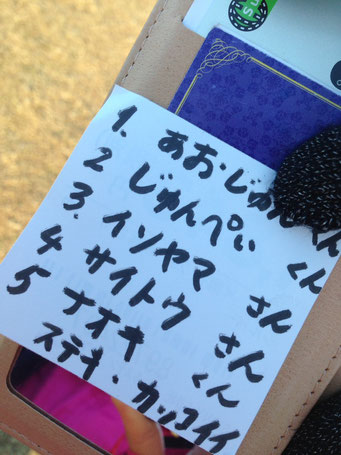 1. あお・じゅんくん
2 じゅんぺいくん
3. イソヤマさん
4 サイトウさん
5 ナオキくん
ステキ・カッコイイ